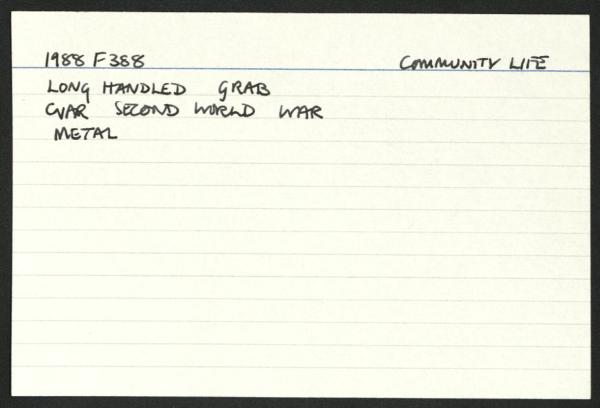 1988 F388 COMMUNITY LIFE
LONG HANDLED GRAB
SECOND WORLD WAR
METAL